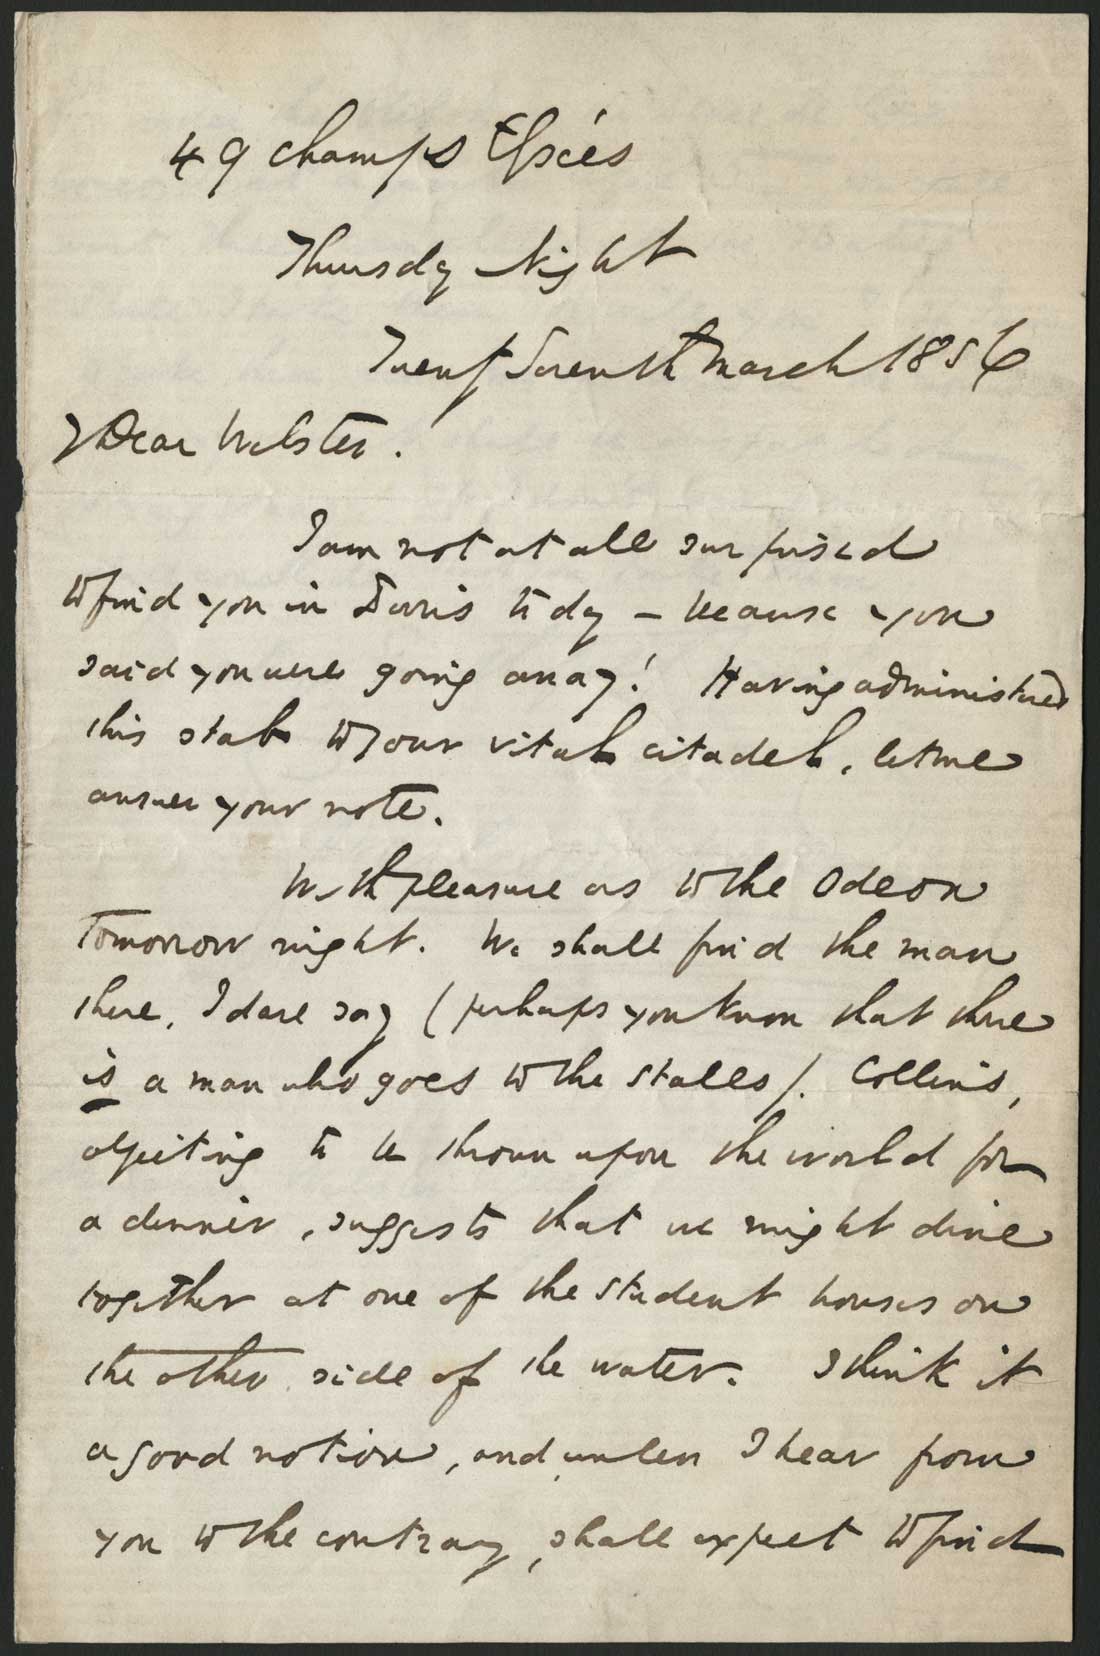 49 Champs Elysées
Thursday Night
Twenty Seventh March 1856
My Dear Webster.
I am not at all surprised
to find you in Paris to day – because you
said you were going away! Having administered
this stab to your vital citadel, let me
answer your note.
With pleasure as to the Odeon
Tomorrow night. We shall find the man
there, I dare say (perhaps you know that there
is a man who goes to the stalls). Collins,
objecting to be thrown upon the world for
a dinner, suggests that we might dine
together at one of the student houses on
the other side of the water. I think it
a good notion, and unless I hear from
you to the contrary, shall expect to find